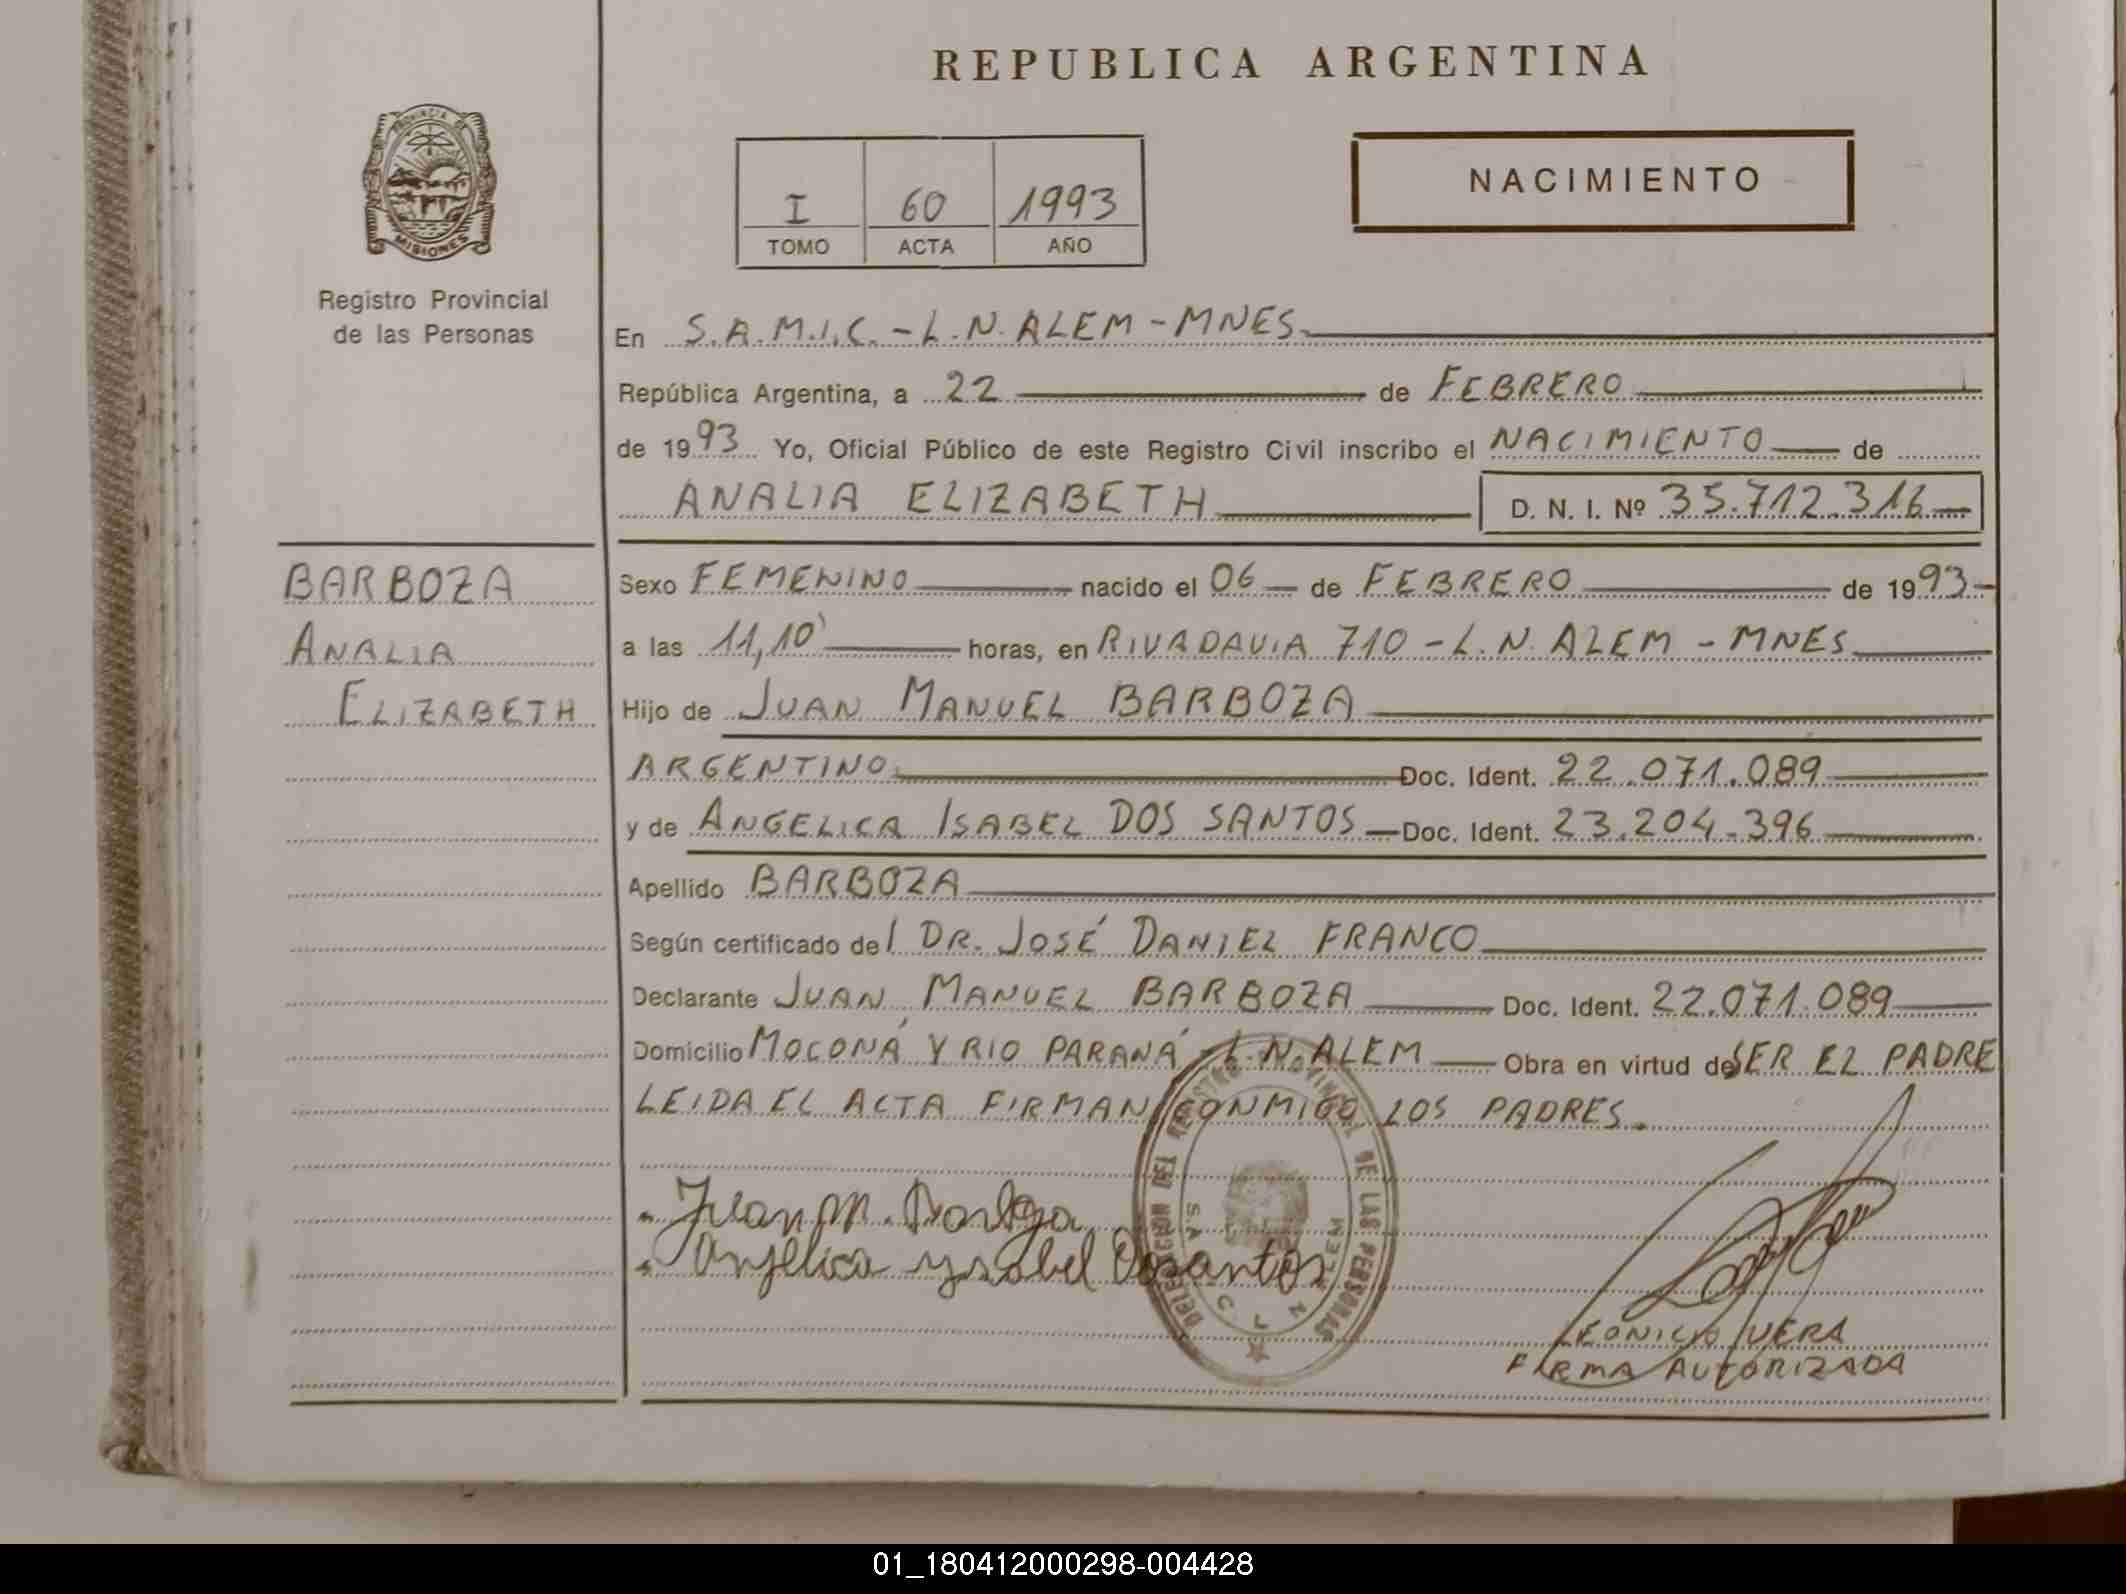 REPUBLICA ARGENTINA
PROVINCIA DE
MISIONES
Registro Provincial
de las Personas
I 60 1993
TOMO ACTA AÑO
NACIMIENTO
En S.A.M.I.C. - L.N. ALEM - MNES.
República Argentina, a 22 de FEBRERO
de 1993 Yo, Oficial Público de este Registro Civil inscribo el NACIMIENTO de
ANALIA ELIZABETH D. N. I. Nº 35.712.316
BARBOZA
ANALIA
ELIZABETH
Sexo FEMENINO nacido el 06 de FEBRERO de 1993
a las 11,10' horas, en RIVADAVIA 710 - L.N. ALEM - MNES
Hijo de JUAN MANUEL BARBOZA
ARGENTINO Doc. Ident. 22.071.089
y de ANGELICA ISABEL DOS SANTOS Doc. Ident. 23.204.396
Apellido BARBOZA
Según certificado del DR. JOSÉ DANIEL FRANCO
Declarante JUAN MANUEL BARBOZA Doc. Ident. 22.071.089
Domicilio MOCONÁ Y RIO PARANÁ - L.N. ALEM Obra en virtud de SER EL PADRE
LEIDA EL ACTA FIRMAN CONMIGO LOS PADRES.
DELEGACION DEL REGISTRO PROVINCIAL DE LAS PERSONAS
Juan M.
Angelica ysabel Dosantos
LEONICIO VERA
FIRMA AUTORIZADA
01_180412000298-004428